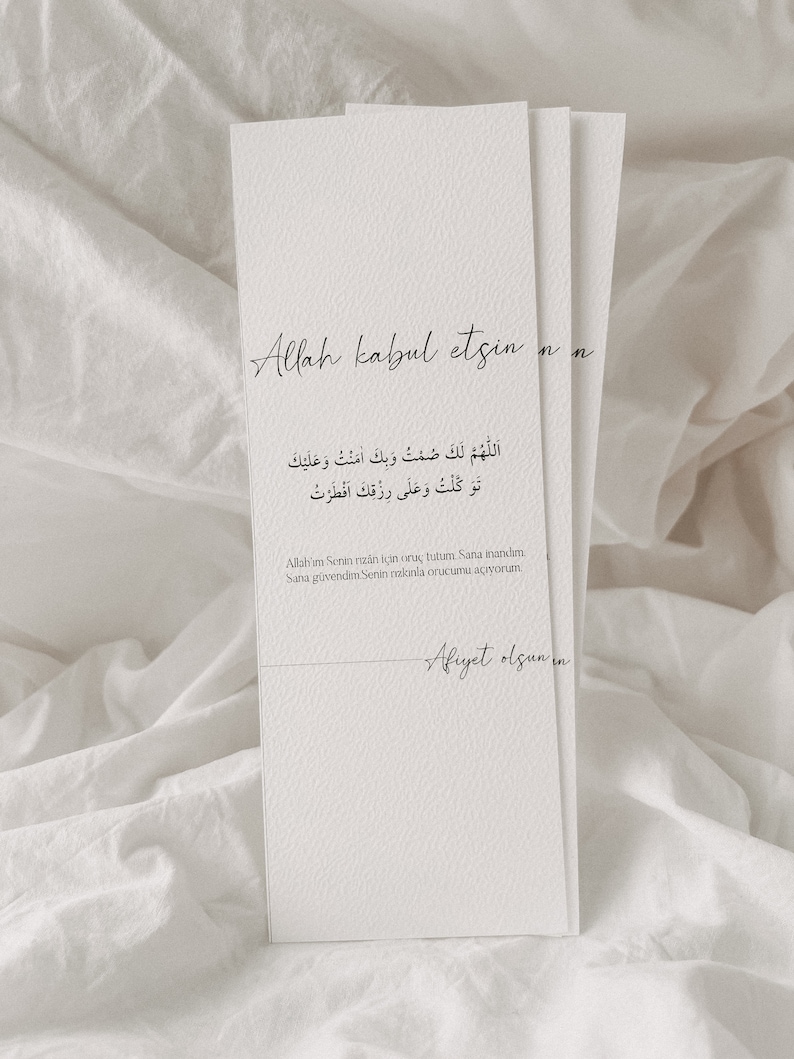 Allah kabul etsin
اَللّٰهُمَّ لَكَ صُمْتُ وَبِكَ اٰمَنْتُ وَعَلَيْكَ
تَوَ كَّلْتُ وَعَلَى رِزْقِكَ اَفْطَرْتُ
Allah'ım Senin rızân için oruç tutum. Sana inandım.
Sana güvendim.Senin rızkınla orucumu açıyorum.
Afiyet olsun